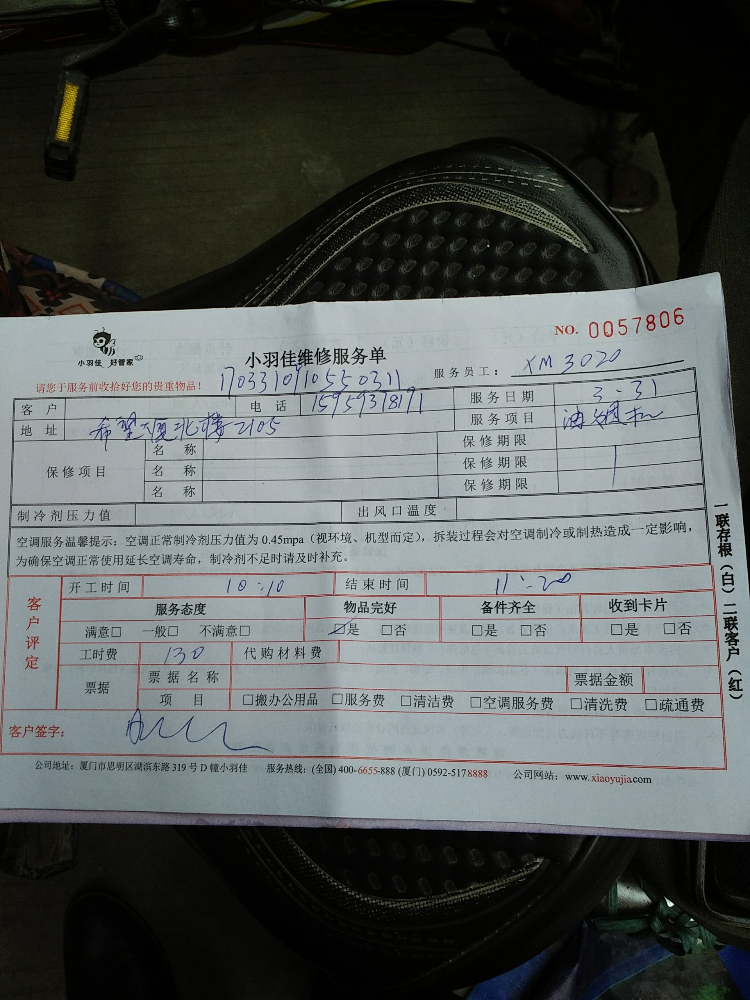 NO. 0057806
小羽佳 好管家
小羽佳维修服务单
服务员工： XM 3020
请您于服务前收拾好您的贵重物品！ 170331091055 0311
客 户 电 话 15959378191 服务日期 3-31
地 址 希望大厦北楼2105 服务项目 油烟机
保修项目 名 称 保修期限
名 称 保修期限
名 称 保修期限
制冷剂压力值 出风口温度
空调服务温馨提示：空调正常制冷剂压力值为 0.45mpa（视环境、机型而定），拆装过程会对空调制冷或制热造成一定影响，
为确保空调正常使用延长空调寿命，制冷剂不足时请及时补充。
客户评定
开工时间 10:10 结束时间 11:20
服务态度 物品完好 备件齐全 收到卡片
满意□ 一般□ 不满意□ ☑是 □否 □是 □否 □是 □否
工时费 130 代购材料费
票据 票据名称 票据金额
项 目 □搬办公用品 □服务费 □清洁费 □空调服务费 □清洗费 □疏通费
客户签字：
公司地址：厦门市思明区湖滨东路 319 号 D 幢小羽佳 服务热线：(全国) 400-6655-888 (厦门) 0592-5178888 公司网站：www.xiaoyujia.com
一联存根（白）二联客户（红）